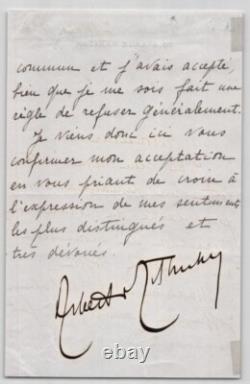 commun et j'avais accepté,
bien que je me sois fait une
règle de refuser généralement.
Je viens donc ici vous
confirmer mon acceptation
en vous priant de croire à
l'expression de mes sentiments
les plus distingués et
très dévoués.
Robert de